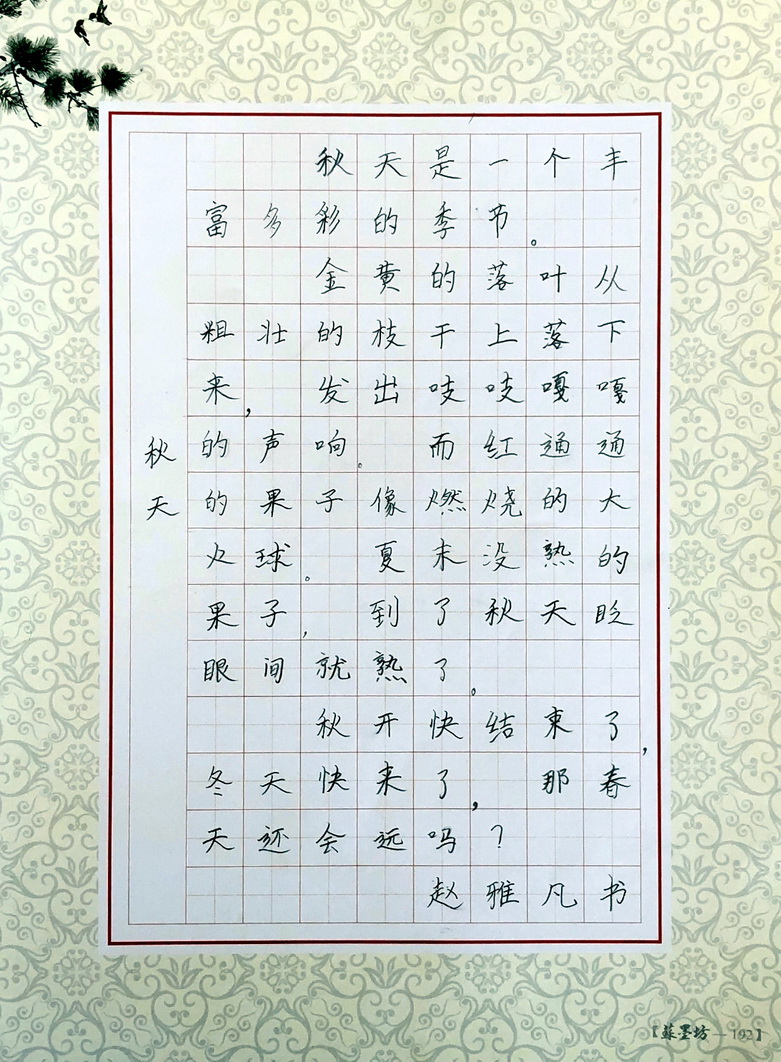 秋天
秋天是一个丰
富多彩的季节。
金黄的落叶从
粗壮的枝干上落下
来,发出吱吱嘎嘎
的声响。而红通通
的果子像燃烧的大
火球。夏末没熟的
果子,到了秋天眨
眼间就熟了。
秋开快结束了,
冬天快来了,那春
天还会远吗?
赵雅凡书
【蘇墨坊—192】